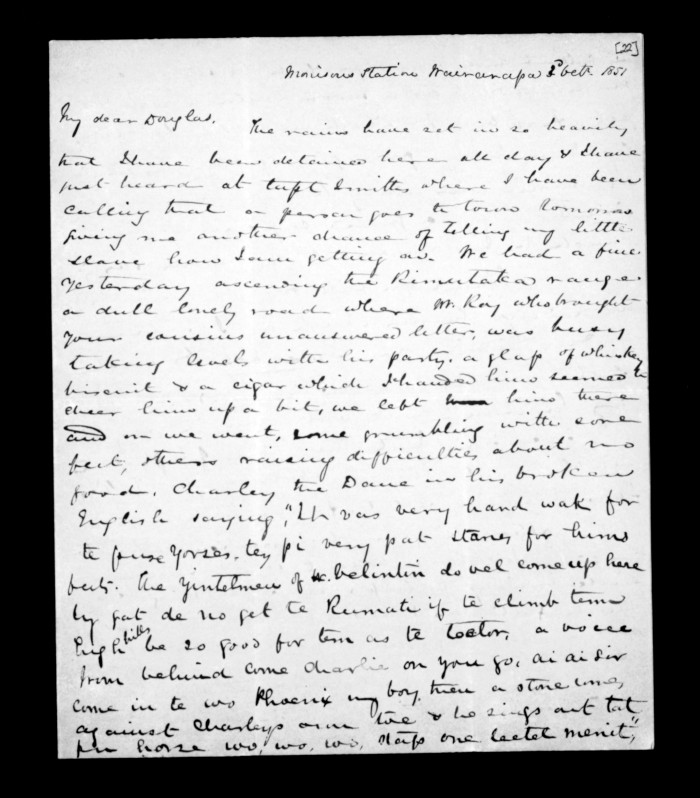 [22]
Morisons Station Wairarapa Octr 1851
My dear Douglas. The rains have set in so heavily
that I have been detained here all day & I have
just heard at Capt Smiths where I have been
calling that a person goes to town tomorrow
giving me another chance of telling my little
slave how I am getting on. We had a fine
Yesterday ascending the Rimutaka range
a dull lonely road where Mr Roy who brought
your cousins unanswered letter, was busy
taking levels with his party. a glass of whiskey
biscuit & a cigar which I handed him seemed to
cheer him up a bit, we left him there
and on we went, some grumbling with sore
feet, others raising difficulties about no
food. Charley the Dane in his broken
English saying, "It vas very hand wak for
te puse Yorses. tey pi very pat stanes for hims
feets. the Yintelmen of Velintin do vel come up here
by gat de no get te Rumati if te climb tem
Engli hills be so good for tem as te toctor, a voice
from behind come Charlie on you go, ai ai sir
come in te wo Phoenix my boy, then a stone comes
against Charleys own toe & he sings out tat
pu horse wo, wo, wo, staps one leetel menit",